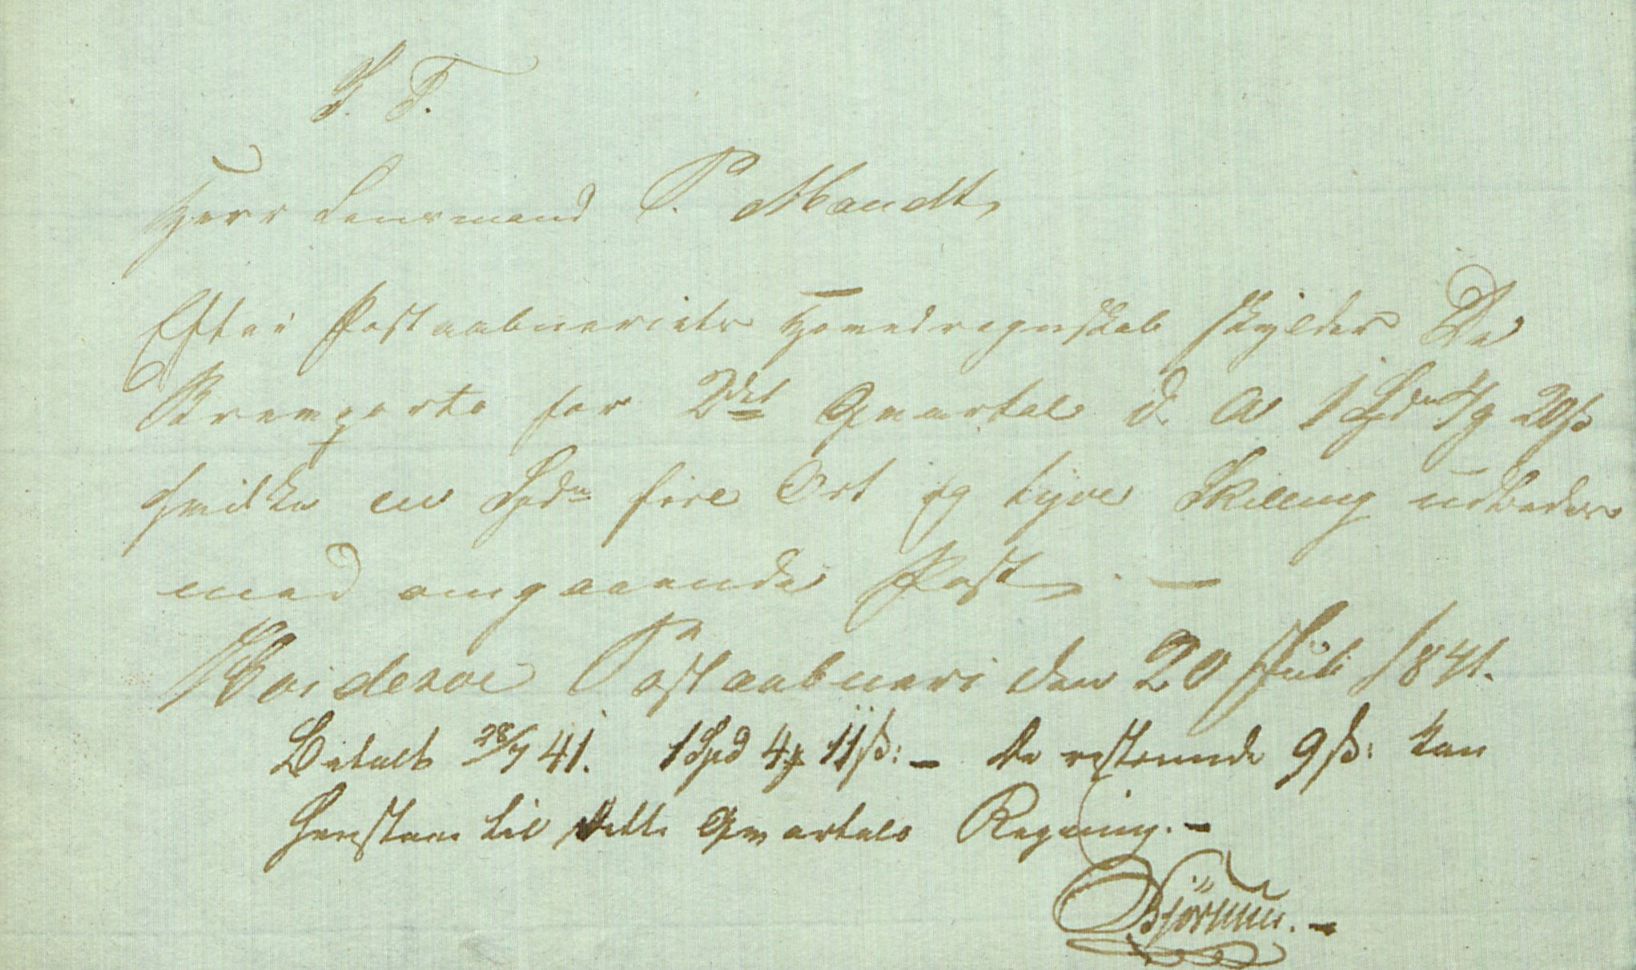 S. T.
Herr Lensmand P. Mandt,
Efter Postaabneriets Hovedregnskab skylder De
Brevporto for 2det Qvartal d. A 1 Spd 4 ₰ 20 ß
hvilke en Spd fire Ort og tyve Skilling udbedes
med omgaaende Post. —
Postaabneri den 20 Juli 1841.
Betalt 28/7 41. 1 Spd 4 ₰ 11 ß: – de resterende 9 ß: kan
henstaae til dette Qvartals Regning. –